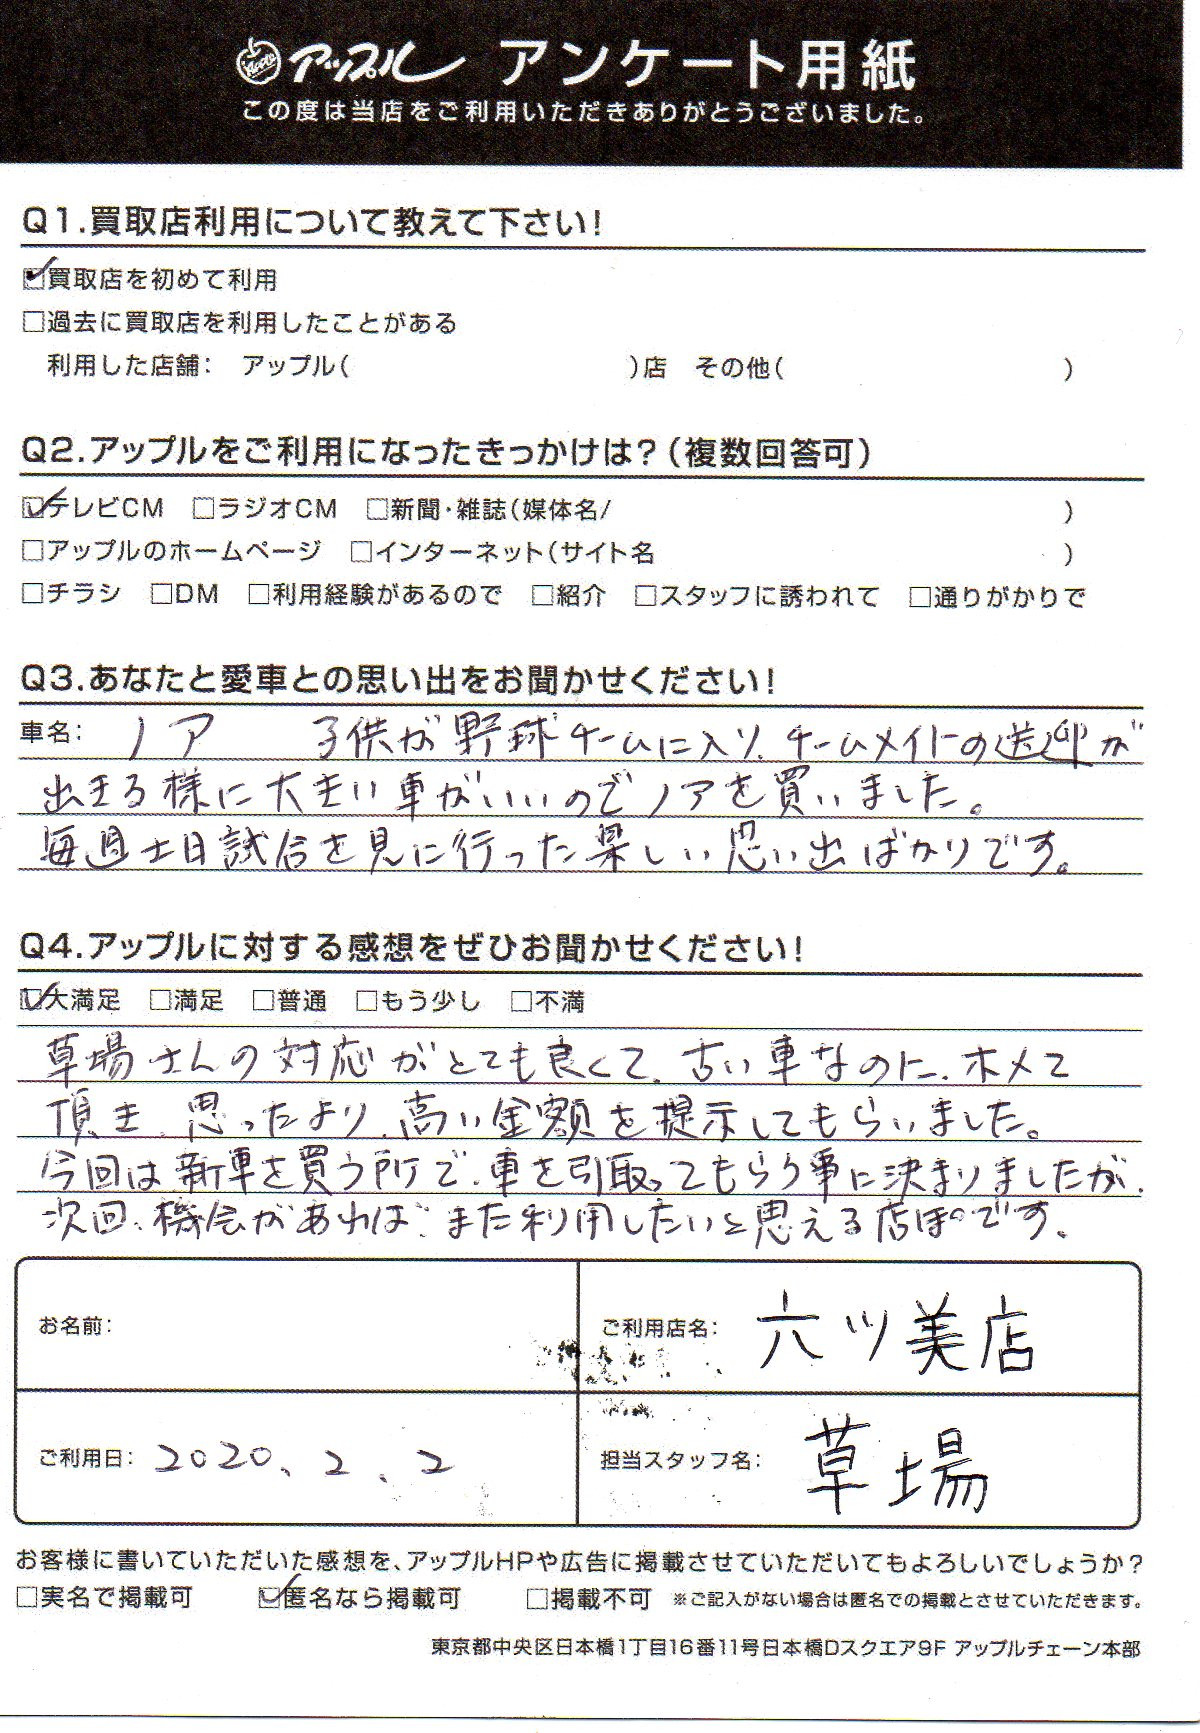 Apple アップル アンケート用紙
この度は当店をご利用いただきありがとうございました。
Q1.買取店利用について教えて下さい!
☑買取店を初めて利用
□過去に買取店を利用したことがある
利用した店舗: アップル( )店 その他( )
Q2.アップルをご利用になったきっかけは?(複数回答可)
☑テレビCM □ラジオCM □新聞・雑誌(媒体名/ )
□アップルのホームページ □インターネット(サイト名 )
□チラシ □DM □利用経験があるので □紹介 □スタッフに誘われて □通りがかりで
Q3.あなたと愛車との思い出をお聞かせください!
車名: ノア 子供が野球チームに入り、チームメイトの送迎が
出きる様に大きい車がいいのでノアを買いました。
毎週土日試合を見に行った楽しい思い出ばかりです。
Q4.アップルに対する感想をぜひお聞かせください!
☑大満足 □満足 □普通 □もう少し □不満
草場さんの対応がとても良くて、古い車なのに、ホメて
頂き、思ったより、高い金額を提示してもらいました。
今回は新車を買う所で、車を引取ってもらう事に決まりましたが、
次回、機会があれば、また利用したいと思える店ぽです。
お名前: ご利用店名: 六ツ美店
ご利用日: 2020、2、2 担当スタッフ名: 草場
お客様に書いていただいた感想を、アップルHPや広告に掲載させていただいてもよろしいでしょうか?
□実名で掲載可 ☑匿名なら掲載可 □掲載不可 ※ご記入がない場合は匿名での掲載とさせていただきます。
東京都中央区日本橋1丁目16番11号日本橋Dスクエア9F アップルチェーン本部